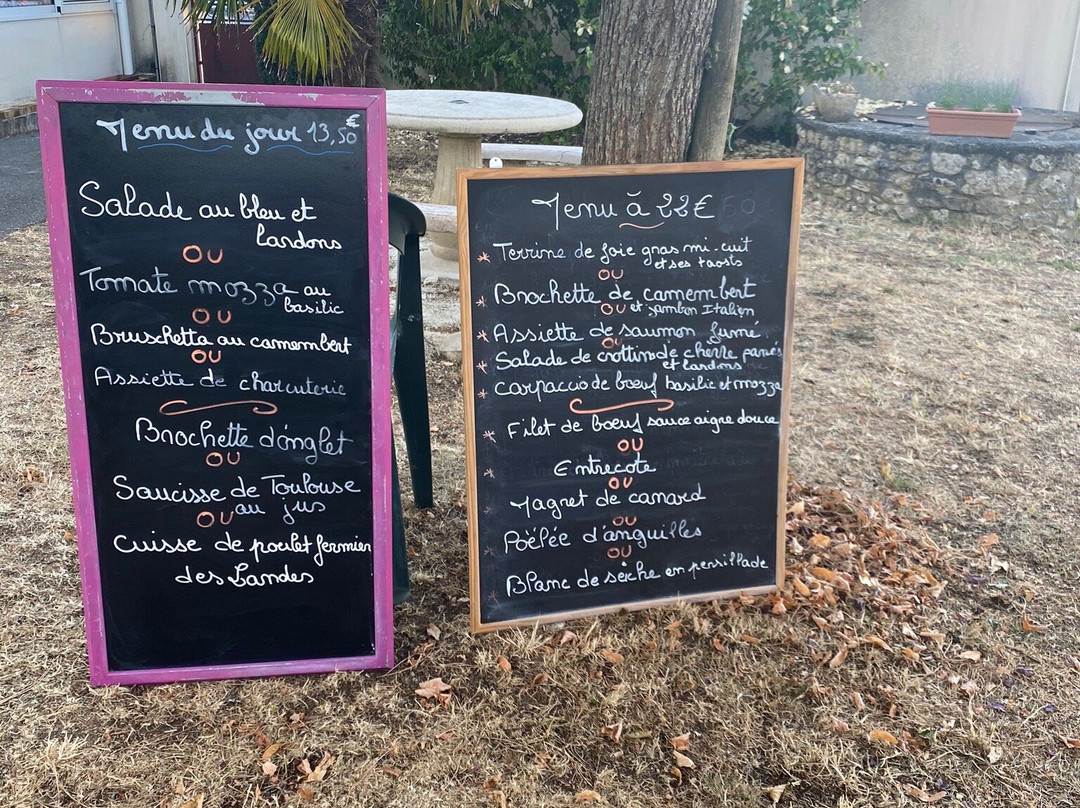 Menu du jour 13,50€
Salade au bleu et
lardons
OU
Tomate mozza au
basilic
OU
Bruschetta au camembert
OU
Assiette de charcuterie
Brochette d'onglet
OU
Saucisse de Toulouse
au jus
OU
Cuisse de poulet fermier
des Landes
Menu à 22€
* Terrine de foie gras mi-cuit
et ses taosts
OU
* Brochette de camembert
OU et jambon Italien
* Assiette de saumon fumé
OU
* Salade de crottins de chèvre panés
et lardons
* Carpaccio de boeuf basilic et mozza
* Filet de boeuf sauce aigre douce
OU
* Entrecote
OU
Magret de canard
OU
Poêlée d'anguilles
OU
Blanc de seiche en persillade